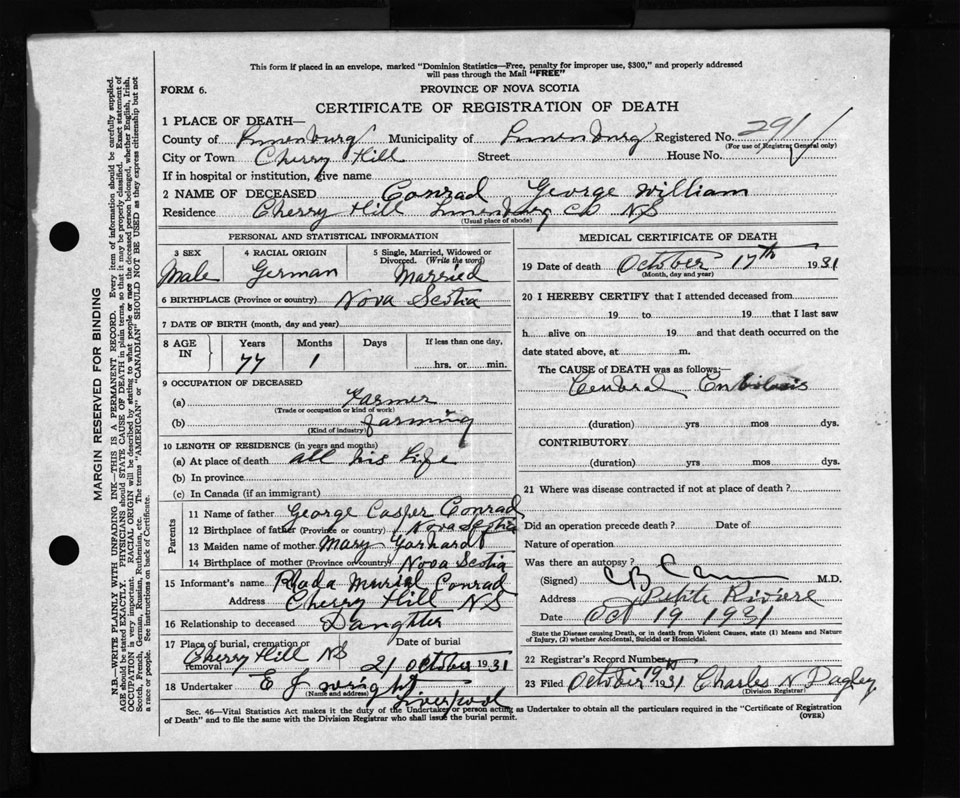 This form if placed in an envelope, marked "Dominion Statistics—Free, penalty for improper use, $300," and properly addressed
will pass through the Mail "FREE"
FORM 6.
PROVINCE OF NOVA SCOTIA
CERTIFICATE OF REGISTRATION OF DEATH
1 PLACE OF DEATH—
County of Lunenburg Municipality of Lunenburg Registered No. 291
(For use of Registrar General only)
City or Town Cherry Hill Street House No.
If in hospital or institution, give name
2 NAME OF DECEASED Conrad George William
Residence Cherry Hill Lunenburg Co NS
(Usual place of abode)
PERSONAL AND STATISTICAL INFORMATION
3 SEX 4 RACIAL ORIGIN 5 Single, Married, Widowed or
Divorced. (Write the word)
Male German Married
6 BIRTHPLACE (Province or country) Nova Scotia
7 DATE OF BIRTH (month, day and year)
8 AGE IN Years Months Days If less than one day,
77 1 hrs. or min.
9 OCCUPATION OF DECEASED
(a) Farmer
(Trade or occupation or kind of work)
(b) farming
(Kind of industry)
10 LENGTH OF RESIDENCE (in years and months)
(a) At place of death all his life
(b) In province
(c) In Canada (if an immigrant)
Parents
11 Name of father George Casper Conrad
12 Birthplace of father (Province or country) Nova Scotia
13 Maiden name of mother Mary
14 Birthplace of mother (Province or country) Nova Scotia
15 Informant's name Rhoda Muriel Conrad
Address Cherry Hill NS
16 Relationship to deceased Daughter
17 Place of burial, cremation or removal Date of burial
Cherry Hill NS 21 October 1931
18 Undertaker E J Wright
(Name and address)
Liverpool
MEDICAL CERTIFICATE OF DEATH
19 Date of death October 17th 1931
(Month, day and year)
20 I HEREBY CERTIFY that I attended deceased from
19 to 19 that I last saw
h alive on 19 and that death occurred on the
date stated above, at m.
The CAUSE of DEATH was as follows:—
(duration) yrs mos dys.
CONTRIBUTORY
(duration) yrs. mos. dys.
21 Where was disease contracted if not at place of death?
Did an operation precede death? Date of
Nature of operation
Was there an autopsy?
(Signed) M.D.
Address Petite Riviere
Date Oct 19 1931
State the Disease causing Death, or in death from Violent Causes, state (1) Means and Nature
of Injury, (2) whether Accidental, Suicidal or Homicidal.
22 Registrar's Record Number
23 Filed October 19th 1931 Charles N Dagley
(Division Registrar)
Sec. 46—Vital Statistics Act makes it the duty of the Undertaker or person acting as Undertaker to obtain all the particulars required in the "Certificate of Registration
of Death" and to file the same with the Division Registrar who shall issue the burial permit.
(OVER)
MARGIN RESERVED FOR BINDING
N.B.—WRITE PLAINLY WITH UNFADING INK—THIS IS A PERMANENT RECORD. Every item of information should be carefully supplied.
AGE should be stated EXACTLY. PHYSICIANS should STATE CAUSE OF DEATH in plain terms, so that it may be properly classified. Exact statement of
OCCUPATION is very important. RACIAL ORIGIN will be described by stating to what people or race the deceased person belonged, whether English, Irish,
Scotch, French, German, Russian, Ruthenian, etc. The terms "AMERICAN" or "CANADIAN" SHOULD NOT BE USED as they express citizenship but not
a race or people. See instructions on back of Certificate.